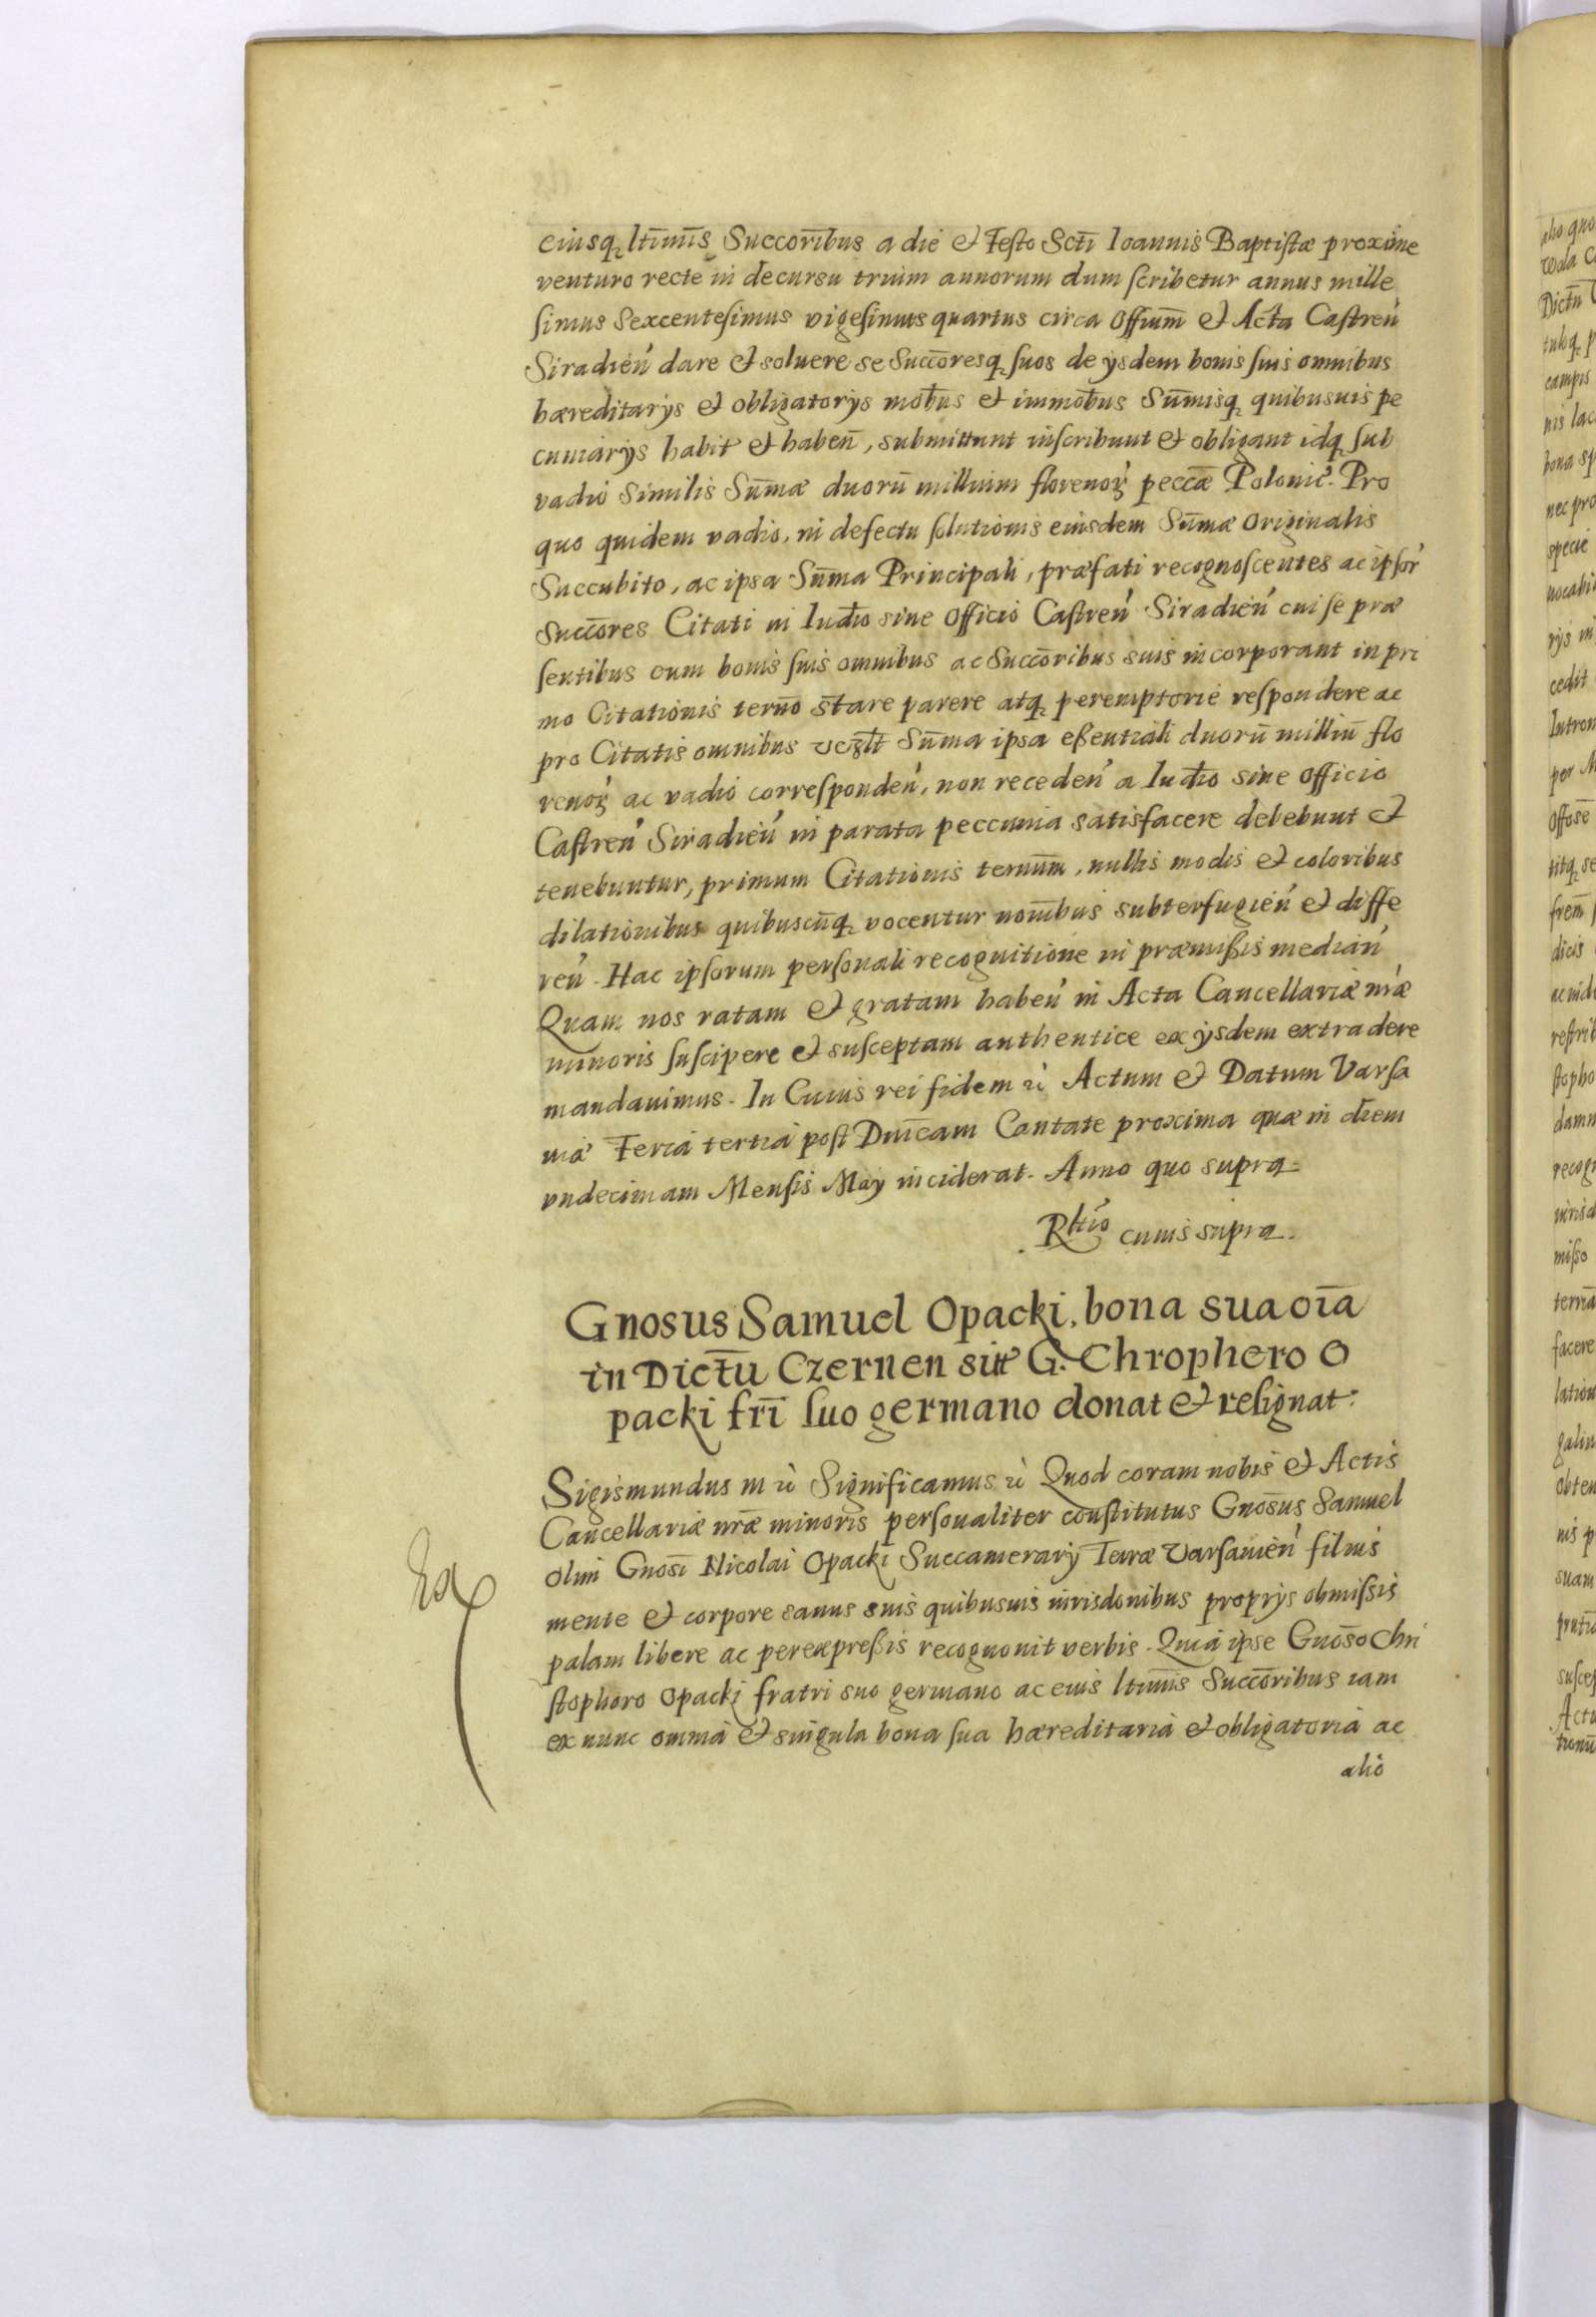 eiusq₃ ltimis̄ Succor̄ibus a die et Festo Scti̅ Ioannis Baptistæ proxime
venturo recte in decursu trium annorum dum scribetur annus mille
simus Sexcentesimus vigesimus quartus circa Offium̅ et Acta Castren̕
Siradien̕ dare et soluere se Succo̅resq₃ suos de ysdem bonis suis omnibus
hæreditarys et obligatorys mob̅us et immob̅us Sum̅isq₃ quibusuis pe
cuniarys habit̕ et haben̅, submittunt inscribunt et obligant idq₃ sub
vadio Similis Sum̅æ duoru̅ millium florenoꝝ pecc̅æ Polonic̕. Pro
quo quidem vadio, in defectu solutionis eiusdem Sum̅æ Originalis
Succubito, ac ipsa Sum̅a Principali, præfati recognoscentes ac ipsor̕
Succo̅res Citati in Iud̅io siue Officio Castren̕ Siradien̕ cui se præ
sentibus cum bonis suis omnibus ac Succo̅ribus suis incorporant in pri
mo Citationis tern̅o stare parere atq₃ peremptorie respondere ac
pro Citatis omnibus Sum̅a ipsa eßentiali duoru̅ milliu̅ flo
renoꝝ ac vadio corresponden̕, non receden̕ a Iud̅io siue Officio
Castren̕ Siradien̕ in parata peccunia satisfacere debebunt et
tenebuntur, primum Citationis tern̅um, nullis modis et coloribus
dilationibus quibuscu̅q₃ vocentur nom̅bus subterfugien̕ et diffe
ren̕. Hac ipsorum personali recognitione in præmißis median̕
Quam nos ratam et gratam haben̕ in Acta Cancellariæ nræ
minoris suscipere et susceptam authentice ex ysdem extradere
mandauimus. In Cuius rei fidem ẜ Actum et Datum Varsa
uiæ Feria tertia post Dnic̅am Cantate proxima quæ in diem
vndecimam Mensis May inciderat. Anno quo supra.
Rltio cuius supra.
Gnosus Samuel Opacki, bona sua oi̅a
in Dictu̅ Czernen sit̕ G. Chrophero O
packi fri̅ suo germano donat et resignat.
Sigismundus III ẜ Significamus ẜ Quod coram nobis et Actis
Cancellariæ nræ̅ minoris personaliter constitutus Gnos̅us Samuel
olim Gnosi̅ Nicolai Opacki Succamerary Terræ Varsauien̕ filius
mente et corpore sanus suis quibusuis iurisdonibus proprys obmissis
palam libere ac per expreßis recognouit verbis. Quia ipse Gnos̅o Chri
stophoro Opacki fratri suo germano ac eius ltimis̅ Succo̅ribus iam
ex nunc omnia et singula bona sua hæreditaria et obligatoria ac
alio